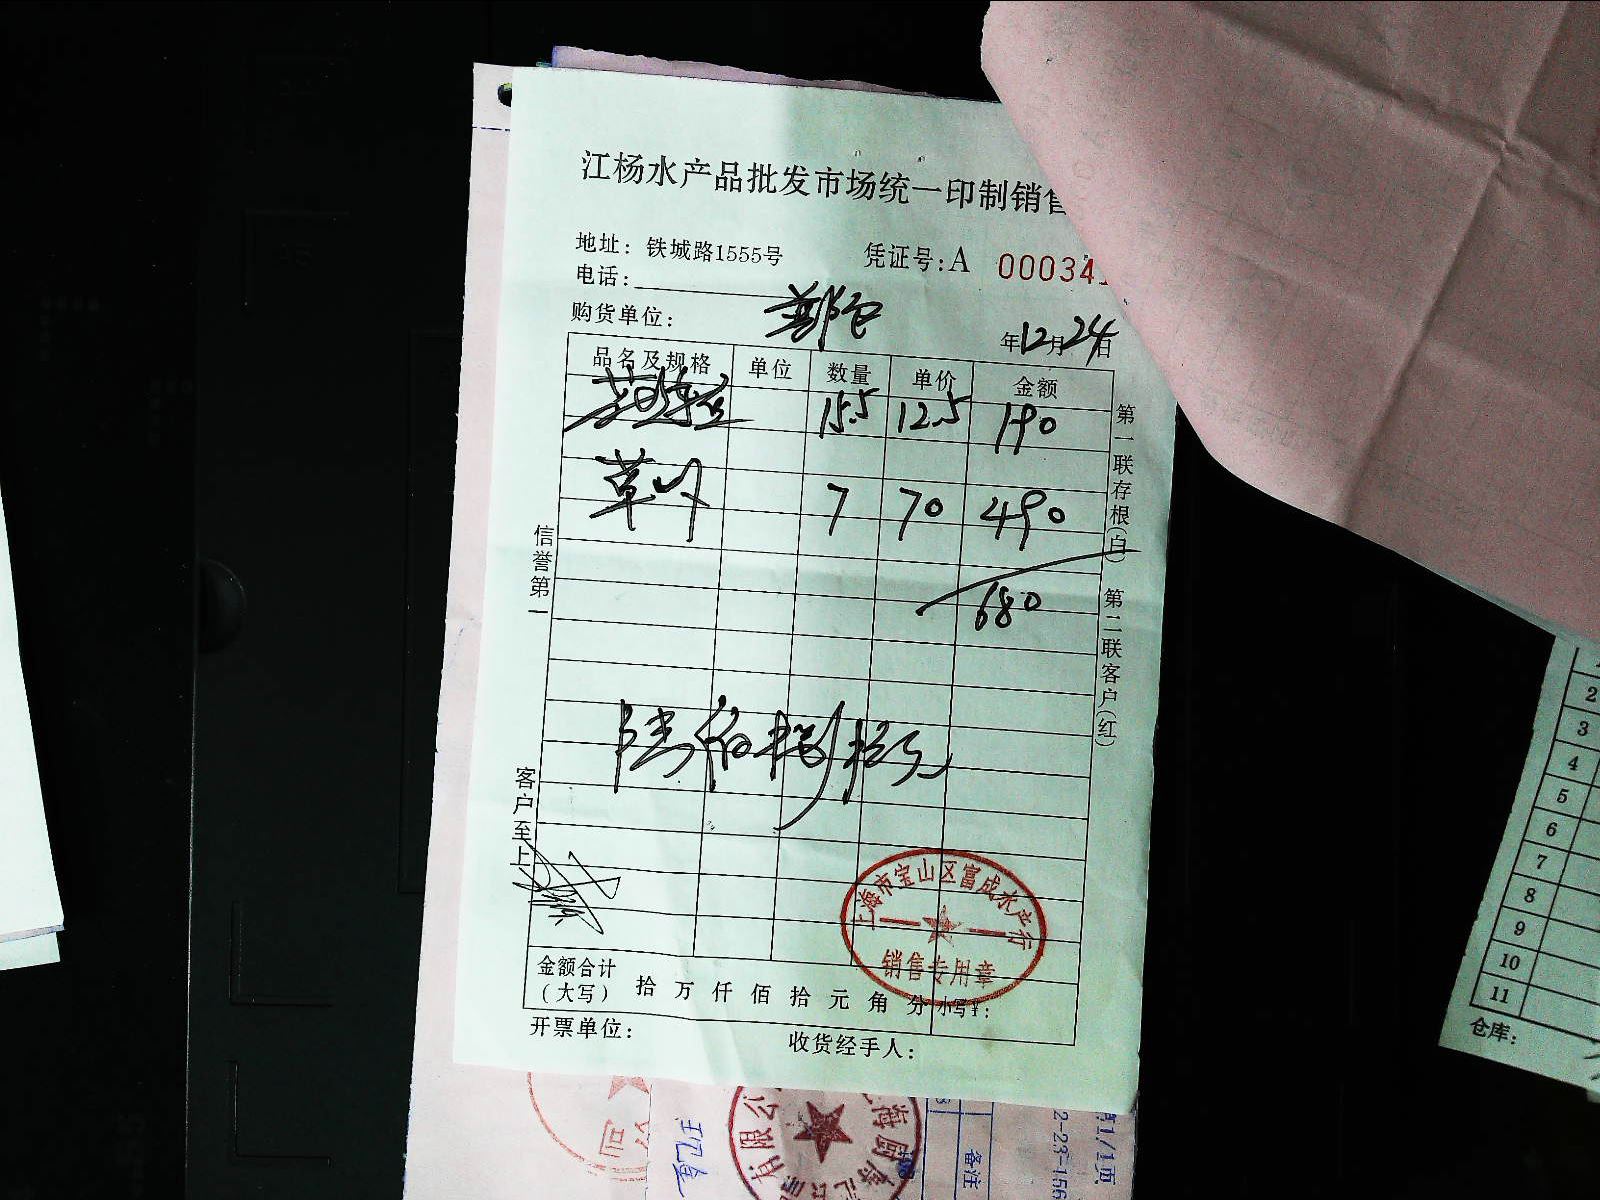 江杨水产品批发市场统一印制销售
地址：铁城路1555号 凭证号：A 00034
电话：
购货单位： 年12月24日
品名及规格 单位 数量 单价 金额
15.5 12.5 190
草 7 70 490
680
陆佰捌拾元
第一联存根(白) 第二联客户(红)
信誉第一
客户至上
上海市宝山区富成水产行
销售专用章
金额合计
（大写） 拾 万 仟 佰 拾 元 角 分 小写¥：
开票单位： 收货经手人：
有限公
备注
第1/1页
2-23-156
2
3
4
5
6
7
8
9
10
11
仓库：